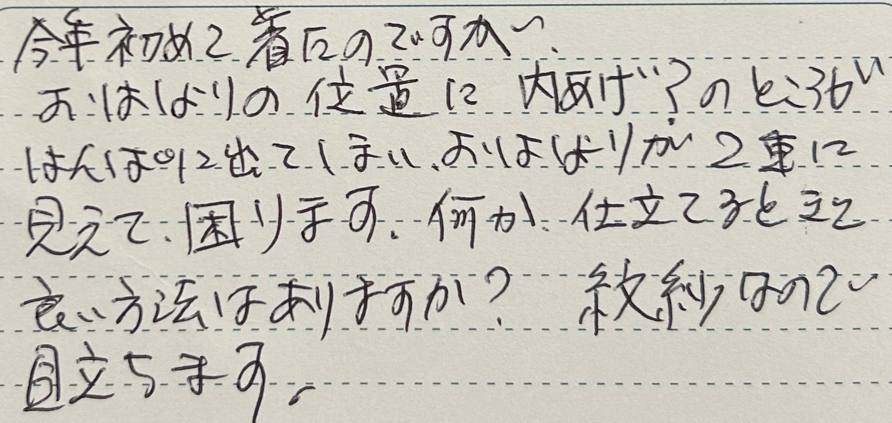 今年初めて着たのですが、
おはしょりの位置に内あげ?のところが
はんぱに出てしまい、おはしょりが2重に
見えて、困ります。何か、仕立てるときに
良い方法はありますか? 紋紗なので
目立ちます。